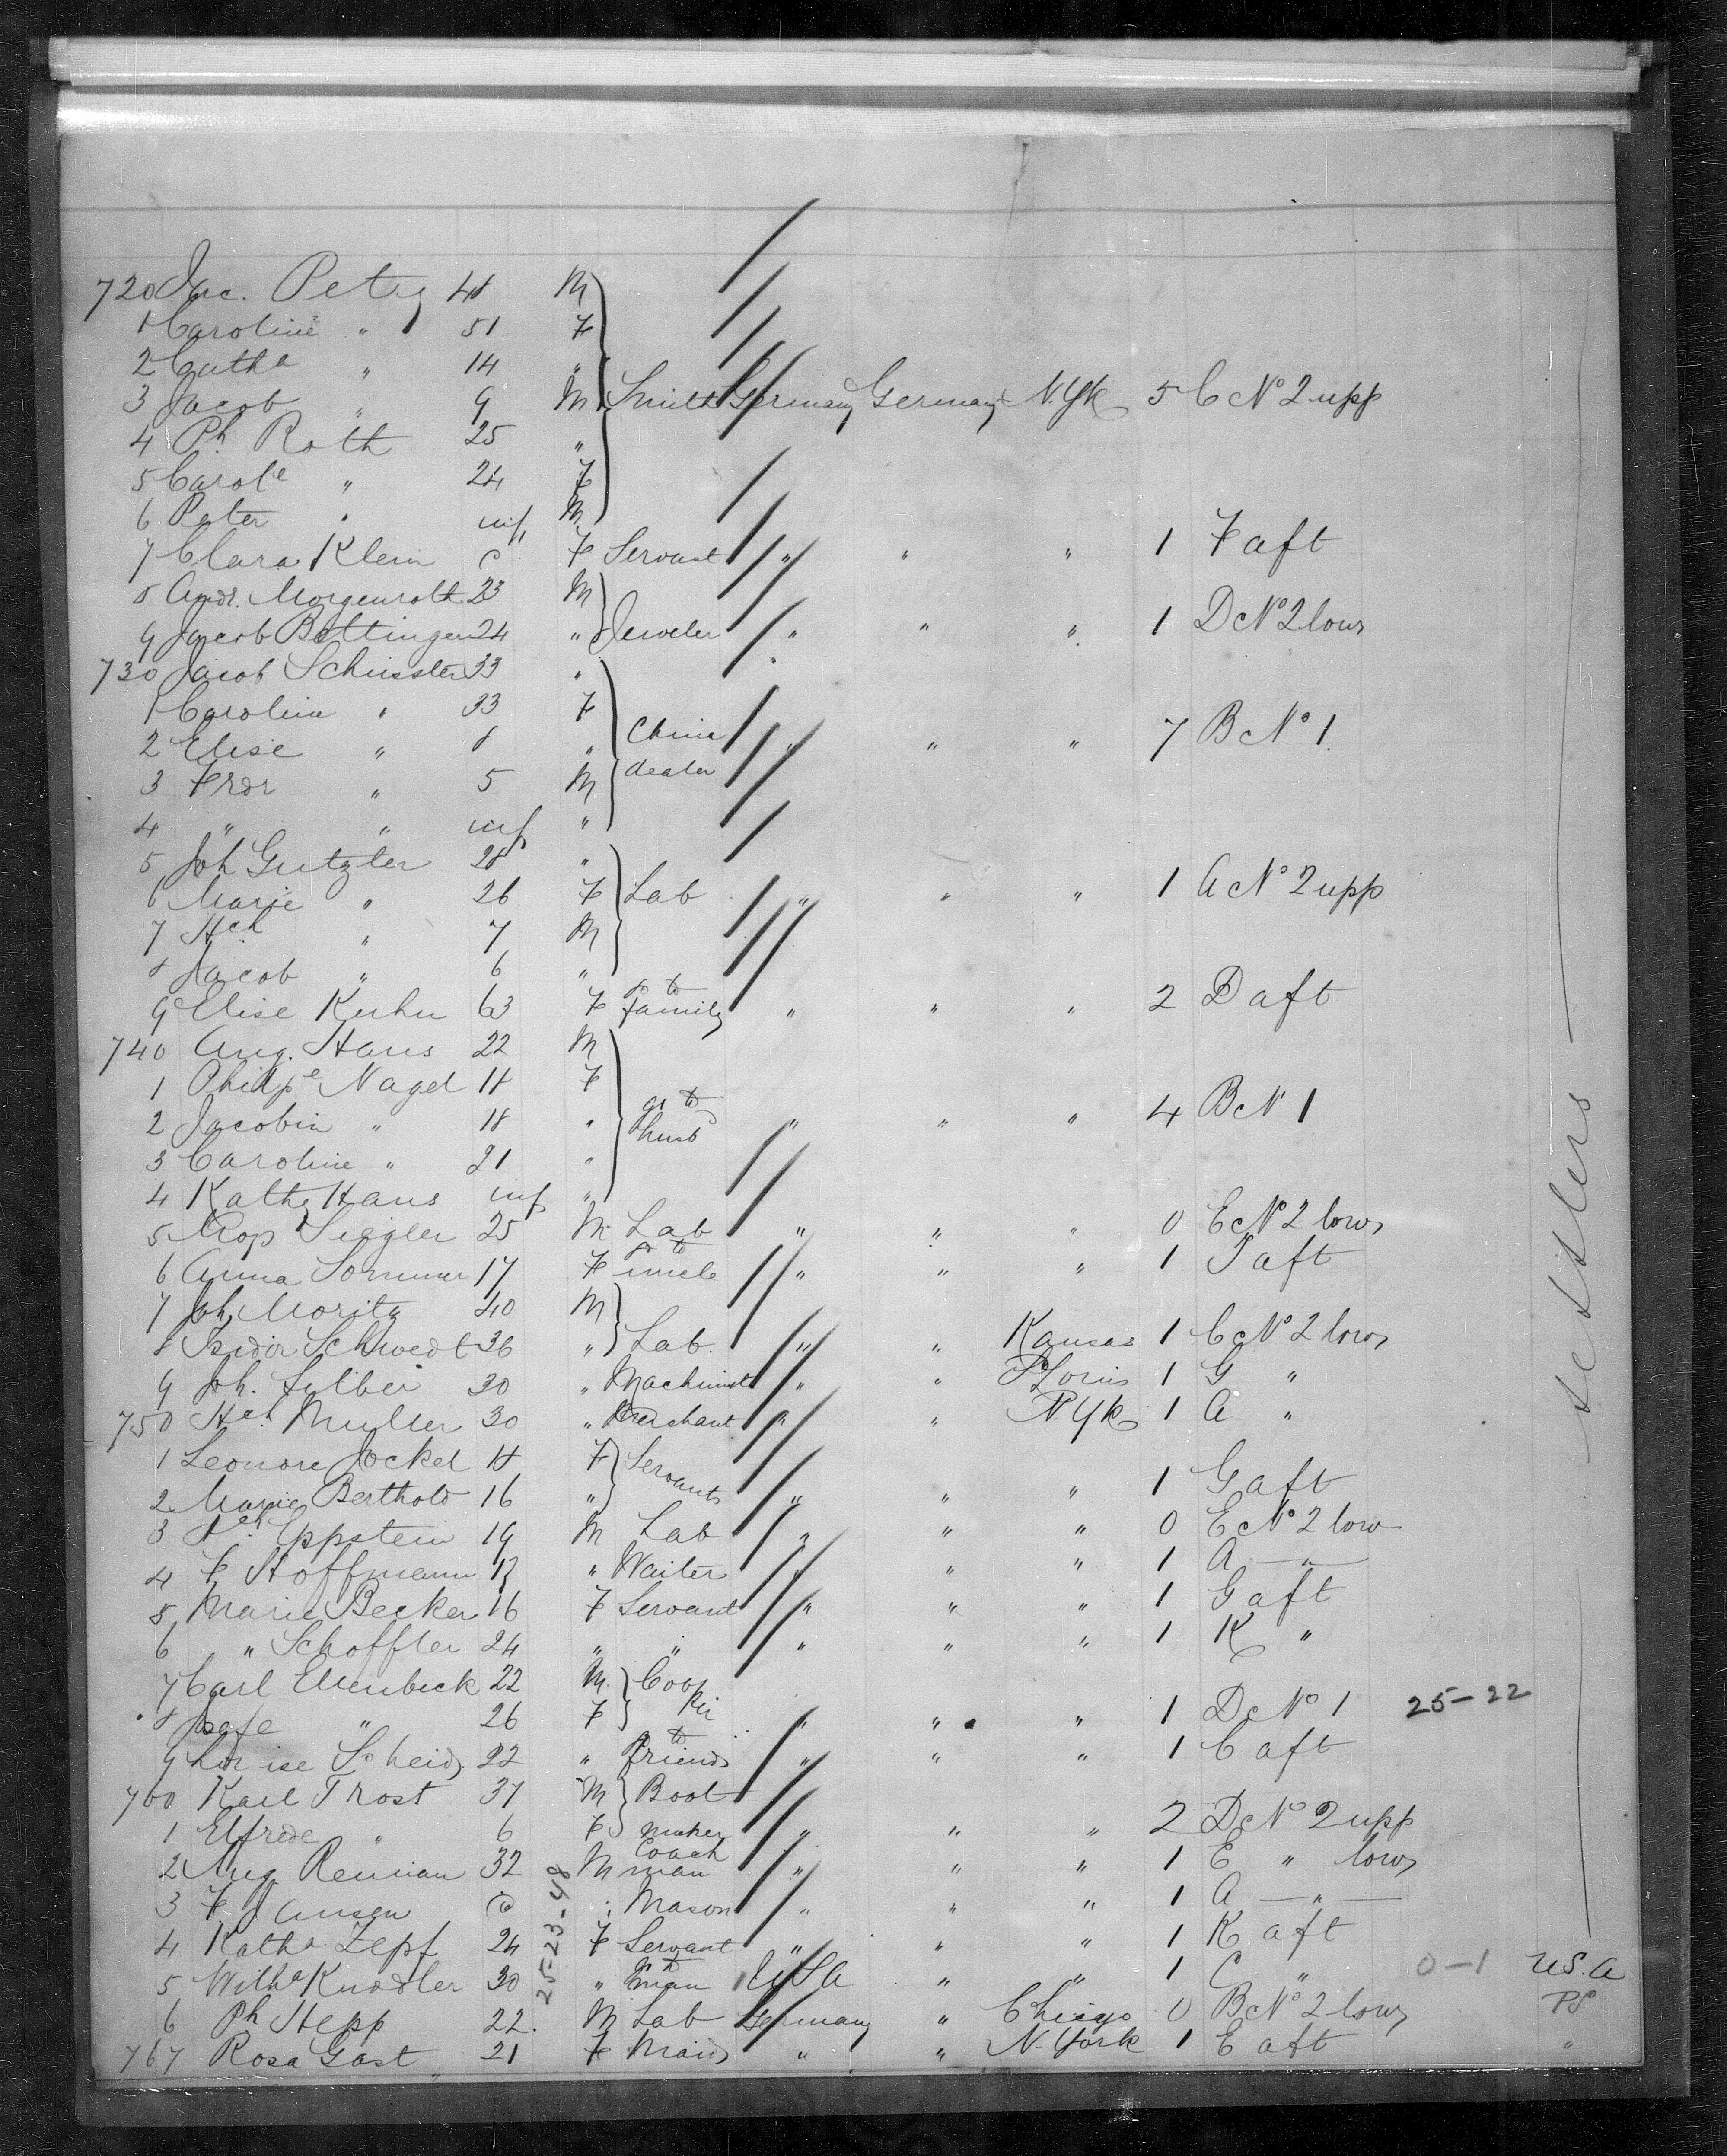 720 Jac. Petry 48 M
1 Caroline " 51 F
2 Cath^a " 14 "
3 Jacob " 9 M Smith Germany Germany N.Yk 5 C No 2 upp
4 Ph. Roth 25 "
5 Carol^e " 24 F
6 Peter " inf M
7 Clara Klein F Servant " " " 1 F aft
8 Andr. Morgenroth 23 M
9 Jacob Bottinger 24 " Jeweler " " " 1 D No 2 low
730 Jacob Schussler 33 "
1 Caroline " 33 F
2 Elise " 8 " China dealer " " " 7 B No 1
3 Frdr " 5 M
4 " " inf "
5 Joh Gutzler 28 "
6 Marie " 26 F Lab " " " 1 A No 2 upp
7 Hch " 7 M
8 Jacob " 6 "
9 Elise Kuhn 63 F to family " " " 2 D aft
740 Aug. Haus 22 M
1 Philip^e Nagel 18 F
2 Jacobin " 18 " to husb " " " 4 B N 1
3 Caroline " 21 "
4 Kath Haus inf "
5 Siegler 25 M Lab " " " 0 E No 2 low
6 Anna Sommer 17 F to uncle " " " 1 aft
7 Joh. Moritz 40 M
8 Isidor Schwedt 36 " Lab. " " Kansas 1 C No 2 low
9 Joh. 30 " Machinist " " St Louis 1 G "
750 Hch Muller 30 " Merchant " " N Yk 1 A "
1 Leonore Jockel 18 F Servants
2 Marie Berthold 16 " " " " 1 G aft
3 Eppstein 19 M Lab " " " 0 E No 2 low
4 F. Hoffmann " Waiter " " " 1 A — " —
5 Marie Becker 16 F Servant " " " 1 G aft
6 " Schoffler 24 " " " " " 1 K "
7 Carl Ellenbeck 22 M Coop
8 " 26 F per " " " 1 D No 1 25-22
9 Louise Scheid 22 " to friends " " " 1 C aft
760 Karl Trost 37 M Boot
1 Elfrede " 6 F maker " " " 2 D No 2 upp
2 Aug. 32 M Coach man " " " 1 E " low
3 F. Jansen " Mason " " " 1 A — " —
4 Kath^a Zepf 24 F Servant " " " 1 K aft
5 Wilh^a Knodler 30 " man USA " " 1 C " 0-1 U.S.A
6 Ph Hepp 22. M Lab Germany " Chicago 0 B No 2 low PS
767 Rosa Gast 21 F Maid " " N. York 1 E aft "
25-23-48
settlers